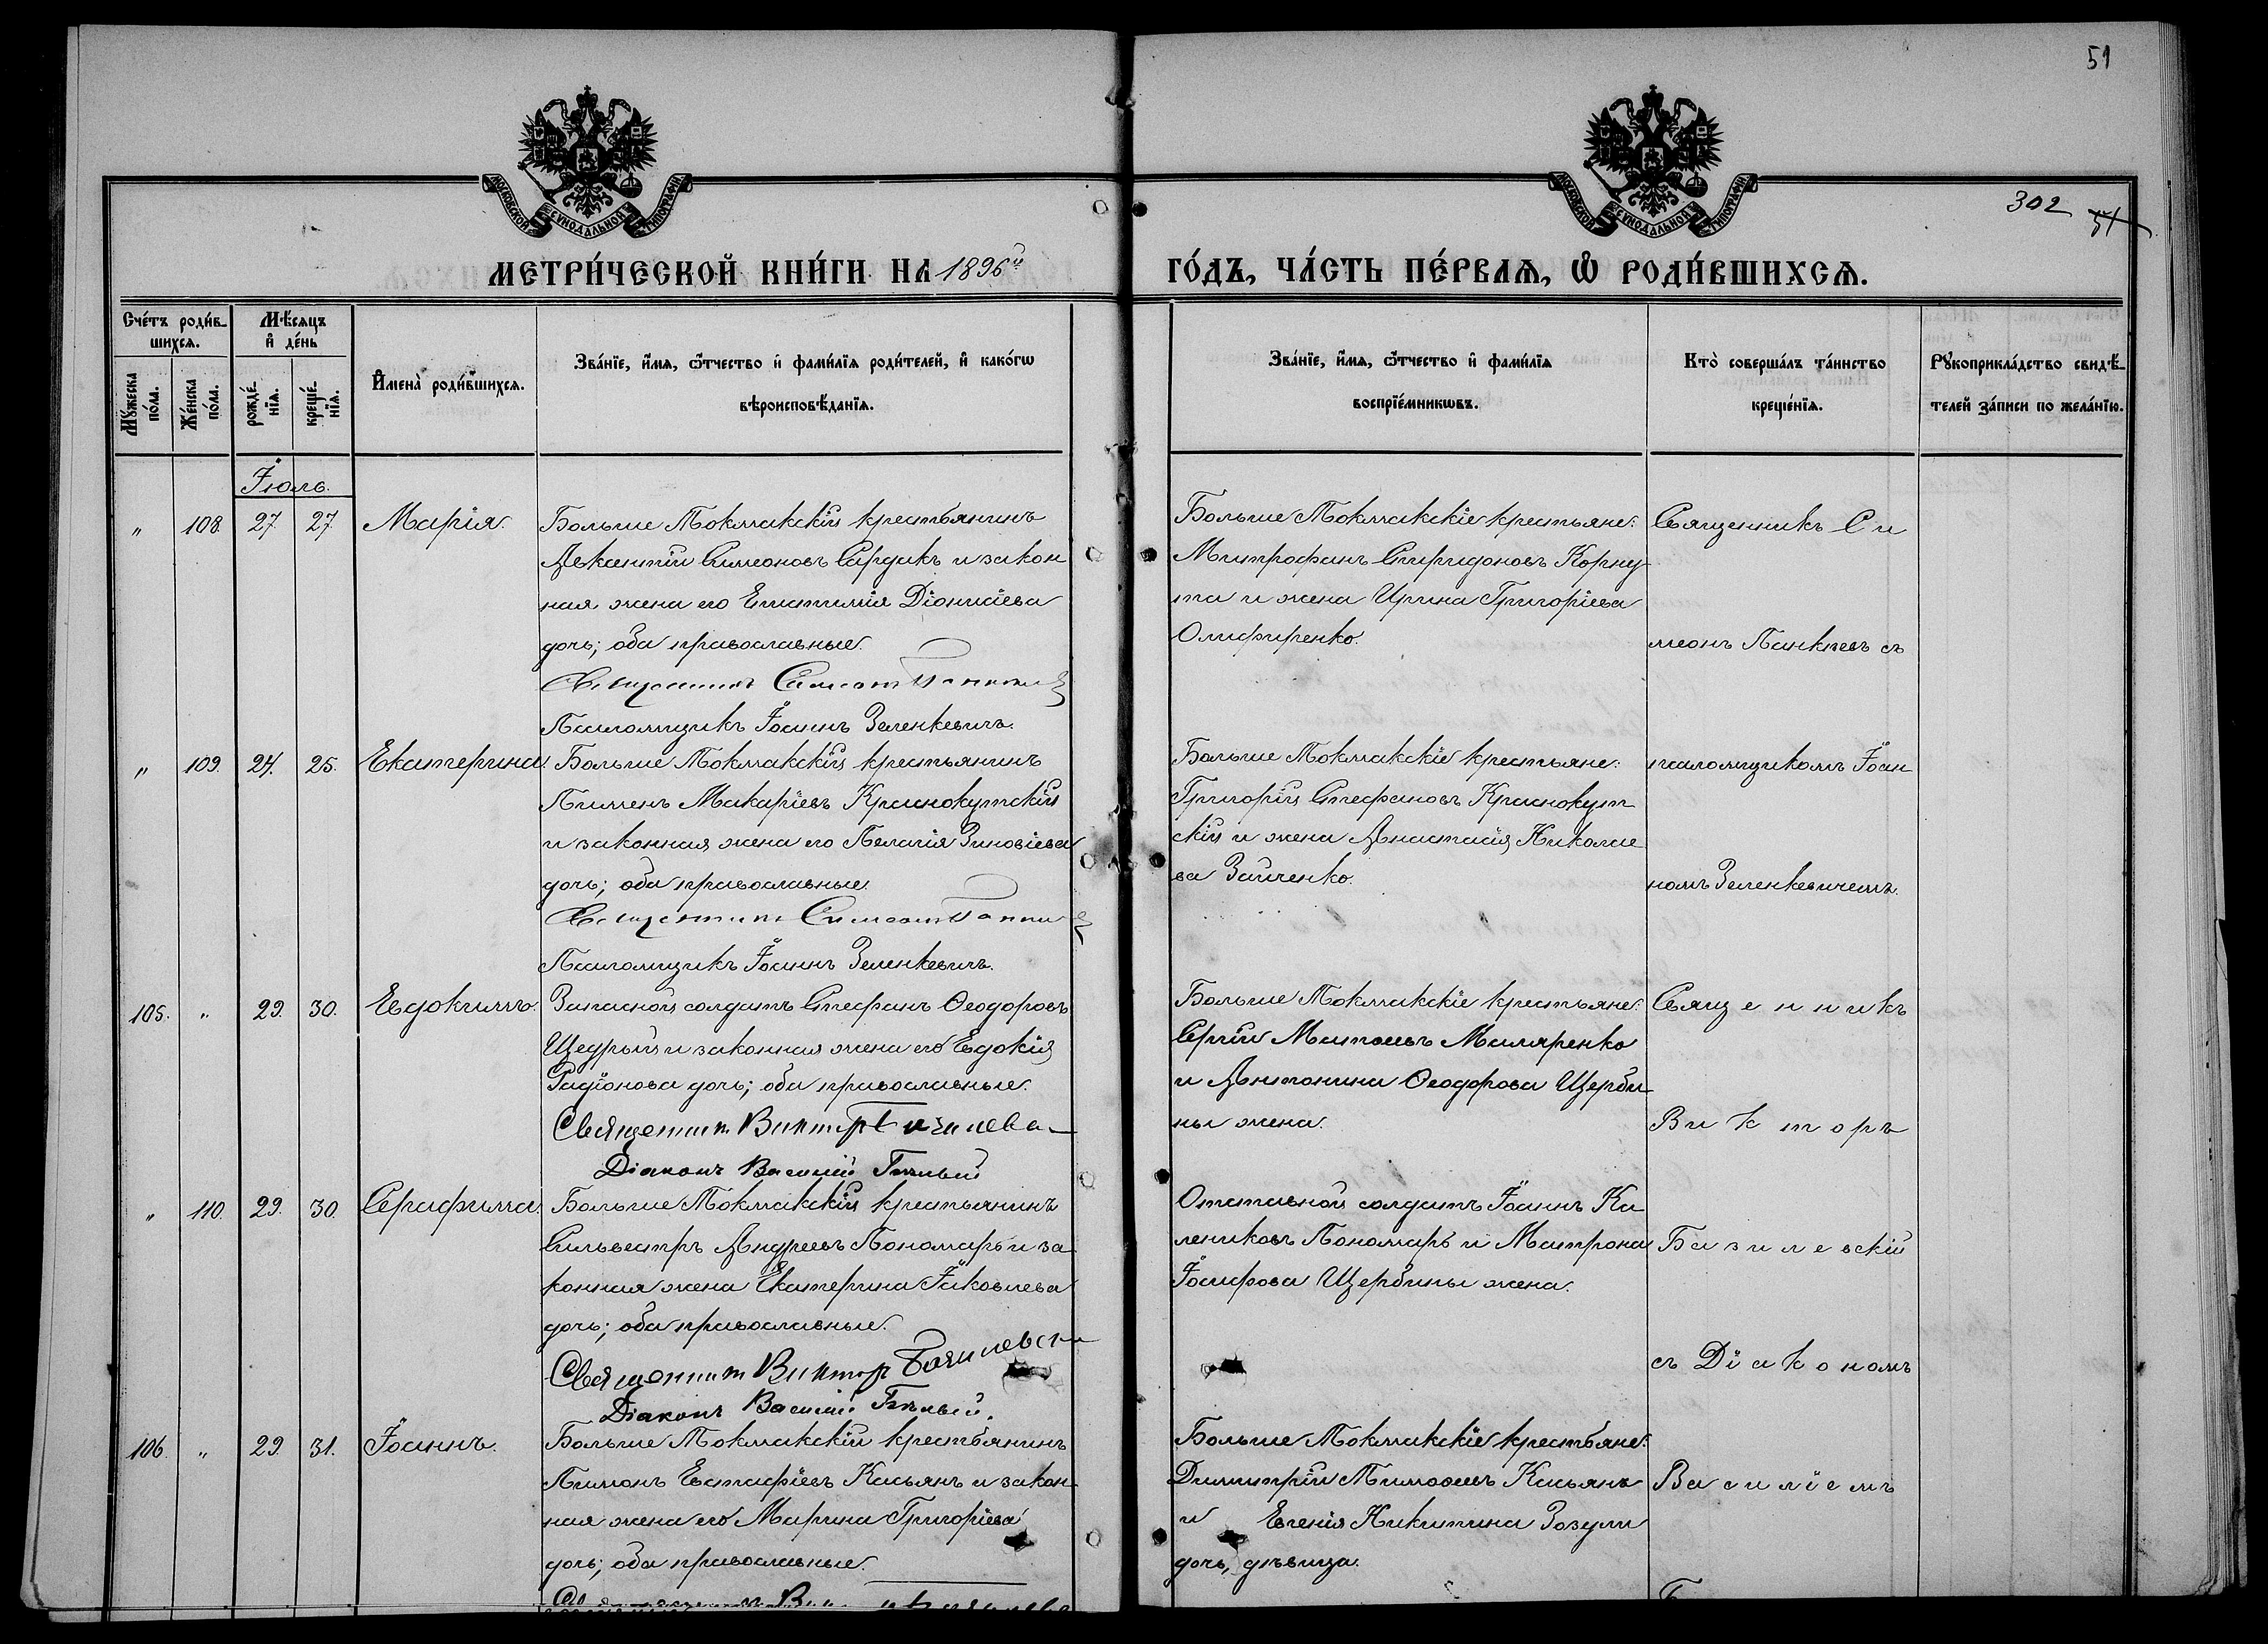 51
302
51
МОСКОВСКОЙ СѴНОДАЛЬНОЙ ТИПОГРАФІИ
МОСКОВСКОЙ СѴНОДАЛЬНОЙ ТИПОГРАФІИ
МЕТРИ́ЧЕСКОЙ КНИ́ГИ НА 1896й
ГО́ДЪ, ЧА́СТЬ ПЕ́РВАѦ, Ѡ РОДИ́ВШИХСѦ.
Сче́тъ роди́в-
шихсѧ.
Мѣ́сѧцъ
и҆ де́нь
Мꙋ́жеска
по́ла.
Же́нска
по́ла.
рожде́-
нїѧ.
креще́-
нїѧ.
И҆мена̀ роди́вшихсѧ.
Зва́нїе, и҆́мѧ, ѻ҆́тчество и҆ фами́лїѧ роди́телей, и҆ како́гѡ
вѣроисповѣ́данїѧ.
Зва́нїе, и҆́мѧ, ѻ҆́тчество и҆ фами́лїѧ
воспрїе́мникѡвъ.
Кто̀ соверша́лъ та́инство
креще́нїѧ.
Рꙋкоприкла́дство свидѣ́-
телей за́писи по жела́нїю.
Іюль.
" 108. 27 27 Марія.
Больше Токмакскій крестьянинъ
Авксентій Симеоновъ Сардакъ и закон
ная жена его Епистимія Діонисіева
дочь; оба православные.
Священникъ Симеонъ Панкеев
Псаломщикъ Іоаннъ Зеленкевичъ.
Больше Токмакскіе крестьяне:
Митрофанъ Спиридоновъ Корну
та и жена Ирина Григоріева
Олифиренко.
Священникъ Си
меонъ Панкеевъ съ
" 109. 24. 25. Екатерина
Больше Токмакскій крестьянинъ
Пименъ Макаріевъ Краснокутскій
и законная жена его Пелагія Зиновіева
дочь; оба православные.
Священникъ Симеонъ Панкеев
Псаломщикъ Іоаннъ Зеленкевичъ.
Больше Токмакскіе крестьяне:
Григорій Стефановъ Краснокут
скій и жена Анастасія Николае
ва Зайченко.
псаломщикомъ Іоан
номъ Зеленкевичемъ.
105. " 29. 30. Евдокимъ.
Запасной солдатъ Стефанъ Ѳеодоровъ
Щедрый и законная жена его Евдокія
Радіонова дочь; оба православные.
Священник Виктор Базилевс
Діаконъ Василій Бѣлый
Больше Токмакскіе крестьяне:
Сергій Матѳеевъ Маляренко
и Антонина Ѳеодорова Щерби
ны жена.
Священникъ
Викторъ
" 110. 29. 30. Серафима
Больше Токмакскій крестьянинъ
Сильвестръ Андреевъ Пономарь и за
конная жена Екатерина Іаковлева
дочь; оба православные.
Священник Виктор Базилевск
Діаконъ Василій Бѣлый.
Отставной солдатъ Іоаннъ Ка
лениковъ Пономарь и Матрона
Іосифова Щербины жена.
Базилевскій
съ Діакономъ
106. " 29. 31. Іоаннъ.
Больше Токмакскій крестьянинъ
Тимонъ Евстафіевъ Касьянъ и закон
ная жена его Марина Григоріева
дочь; оба православные.
Больше Токмакскіе крестьяне:
Димитрій Тимоѳеевъ Касьянъ
и Евгенія Никитина Зозули
дочь, дѣвица.
Василіемъ